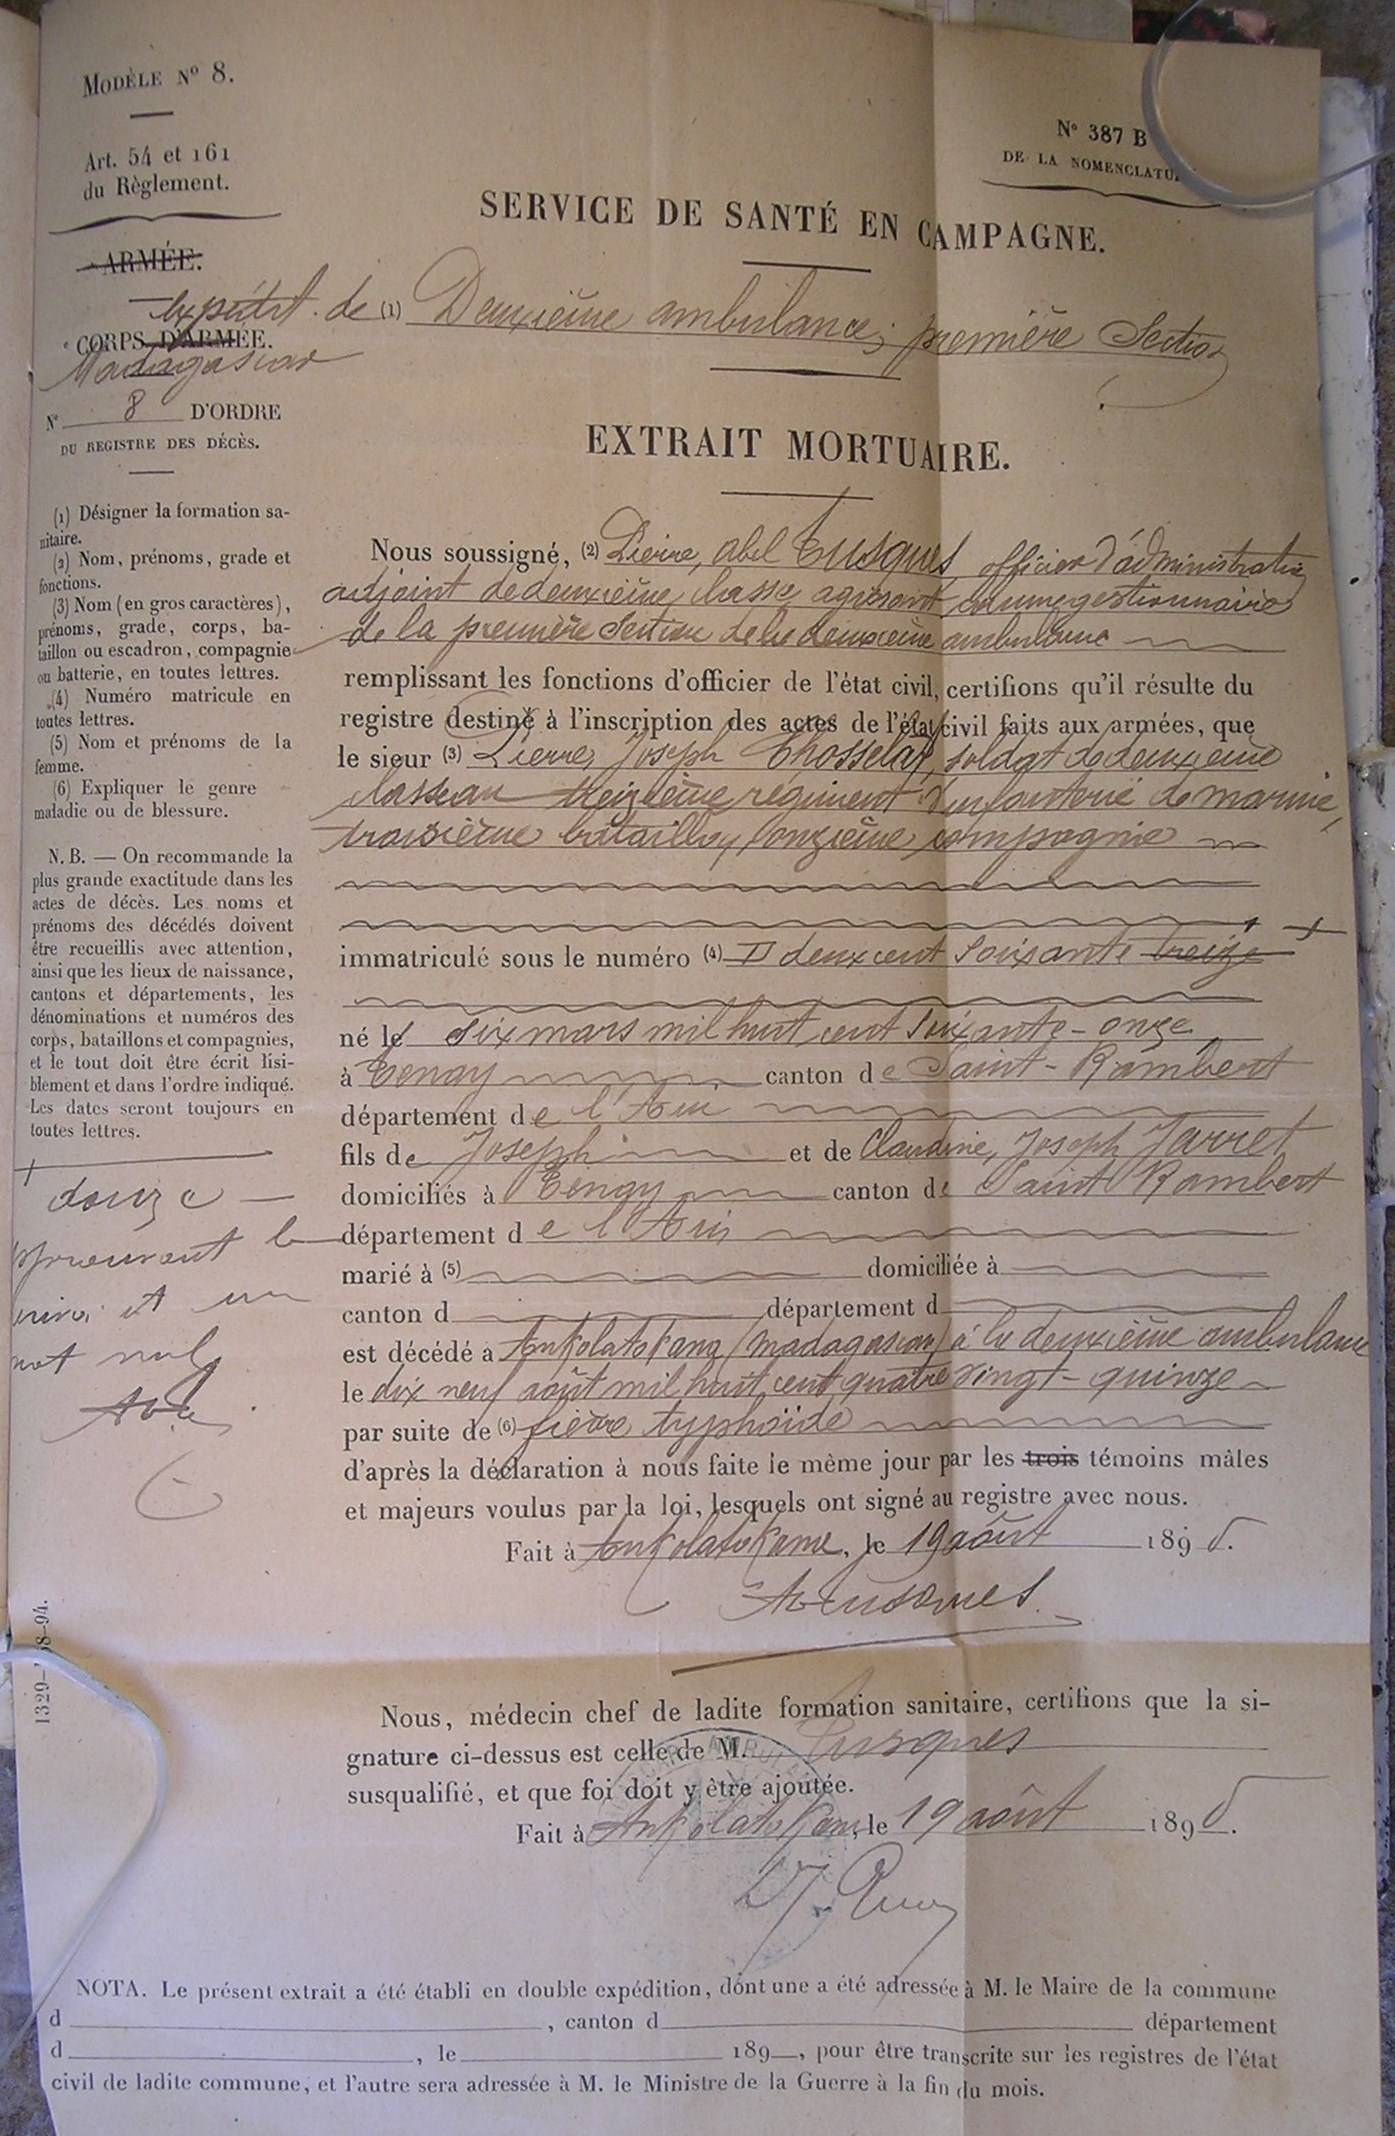 MODÈLE N° 8.
Art. 54 et 161
du Règlement.
N° 387 B
DE LA NOMENCLATU
SERVICE DE SANTÉ EN CAMPAGNE.
ARMÉE.
expédit. de (1) Deuxième ambulance, première Section
CORPS D'ARMÉE.
Madagascar
N° 8 D'ORDRE
DU REGISTRE DES DÉCÈS.
EXTRAIT MORTUAIRE.
(1) Désigner la formation sa-
nitaire.
(2) Nom, prénoms, grade et
fonctions.
(3) Nom (en gros caractères),
prénoms, grade, corps, ba-
taillon ou escadron, compagnie
ou batterie, en toutes lettres.
(4) Numéro matricule en
toutes lettres.
(5) Nom et prénoms de la
femme.
(6) Expliquer le genre
maladie ou de blessure.
N. B. — On recommande la
plus grande exactitude dans les
actes de décès. Les noms et
prénoms des décédés doivent
être recueillis avec attention,
ainsi que les lieux de naissance,
cantons et départements, les
dénominations et numéros des
corps, bataillons et compagnies,
et le tout doit être écrit lisi-
blement et dans l'ordre indiqué.
Les dates seront toujours en
toutes lettres.
douze
approuvant le
renvoi et un
mot nul
1329-
8-94.
Nous soussigné, (2) Pierre, Abel Tusques, officier d'administration
adjoint de deuxième classe, agissant comme gestionnaire
de la première Section de la deuxième ambulance
remplissant les fonctions d'officier de l'état civil, certifions qu'il résulte du
registre destiné à l'inscription des actes de l'état civil faits aux armées, que
le sieur (3) Pierre, Joseph Chosselat, soldat de deuxième
classe au treizième régiment d'infanterie de marine,
troisième bataillon, onzième compagnie
immatriculé sous le numéro (4) deux cent soixante treize
né le six mars mil huit cent soixante-onze
à Tenay canton de Saint-Rambert
département de l'Ain
fils de Joseph et de Claudine, Joseph Jarret
domiciliés à Tenay canton de Saint Rambert
département de l'Ain
marié à (5) domiciliée à
canton d département d
est décédé à Ankolatokana (Madagascar) à la deuxième ambulance
le dix neuf août mil huit cent quatre vingt-quinze
par suite de (6) fièvre typhoïde
d'après la déclaration à nous faite le même jour par les trois témoins mâles
et majeurs voulus par la loi, lesquels ont signé au registre avec nous.
Fait à Ankolatokana, le 19 août 1895.
A Tusques
Nous, médecin chef de ladite formation sanitaire, certifions que la si-
gnature ci-dessus est celle de M. Tusques
susqualifié, et que foi doit y être ajoutée.
Fait à Ankolatokana, le 19 août 1895.
NOTA. Le présent extrait a été établi en double expédition, dont une a été adressée à M. le Maire de la commune
d , canton d département
d , le 189 , pour être transcrite sur les registres de l'état
civil de ladite commune, et l'autre sera adressée à M. le Ministre de la Guerre à la fin du mois.